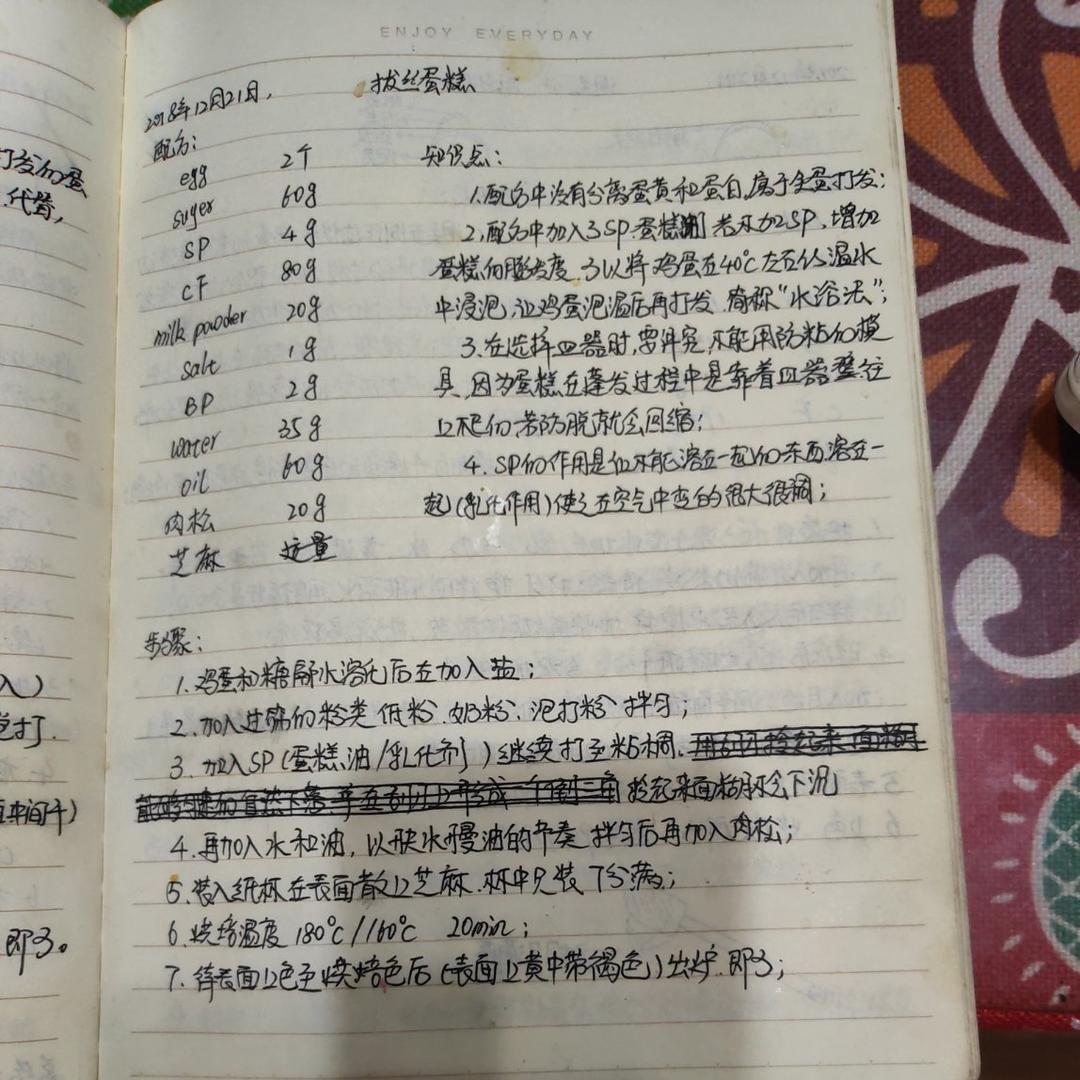 ENJOY EVERYDAY
2018年12月21日, 拔丝蛋糕
配方:
egg 2个 知识点:
suger 60g 1.配方中没有分离蛋黄和蛋白,属于全蛋打发;
SP 4g 2.配方中加入了SP.蛋糕 若不加SP,增加
CF 80g 蛋糕的膨发度.可以将鸡蛋在40℃左右的温水
milk powder 20g 中浸泡,让鸡蛋泡温后再打发.简称"水浴法";
salt 1g 3.在选择皿器时,要什完,不能用防粘的模
BP 2g 具,因为蛋糕在蓬发过程中是靠着皿器壁往
water 35g 上爬的,若防脱就会回缩;
oil 60g 4.SP的作用是似不能溶在一起的东西溶在一
肉松 20g 起(乳化作用)使之在空气中变的很大很稠;
芝麻 适量
步骤:
1.鸡蛋和糖隔水溶化后在加入盐;
2.加入过筛的粉类 低粉.奶粉、泡打粉 拌匀;
3.加入SP(蛋糕油/乳化剂)继续打至粘稠.
拎起来面糊不会下沉
4.再加入水和油,以快水慢油的节奏 拌匀后再加入肉松;
5.装入纸杯在表面散上芝麻.杯中只装7分满;
6.烘焙温度180℃/160℃ 20min;
7.待表面上色至烘焙色后(表面上黄中带褐色)出炉.即可;
打发的蛋
代替,
入)
打.
中间千)
即可。